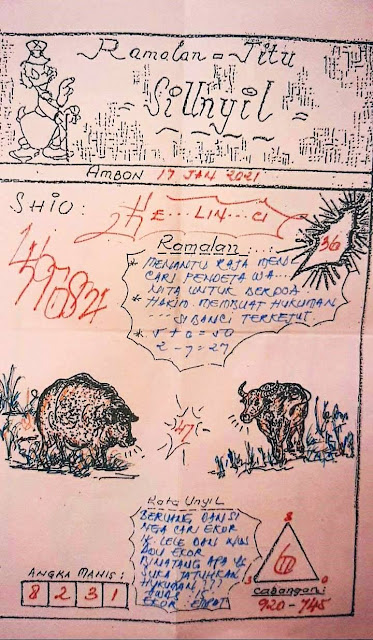 Ramalan = Jitu
SiUnyil
AMBON 17 JAN 2021
SHIO :
E... LIN... CI
36
Ramalan
* MENANTU RAJA MEN
CARI PENDETA WA...
NITA UNTUK BERDOA
* HAKIM MEMBUAT HUKUMAN
SI BANCI TERKEJUT
2 - 7 = 27
47
Kata Unyil
BERUANG DAN SI
CARI EKOR
LELE DAN
ADU EKOR
BINATANG APA YG
SUKA JATUHKAN
HUKUMAN ???
EKOR : EMPAT
ANGKA MANIS :
8 2 3 1
8
3 0
Cabangan :
920 - 745